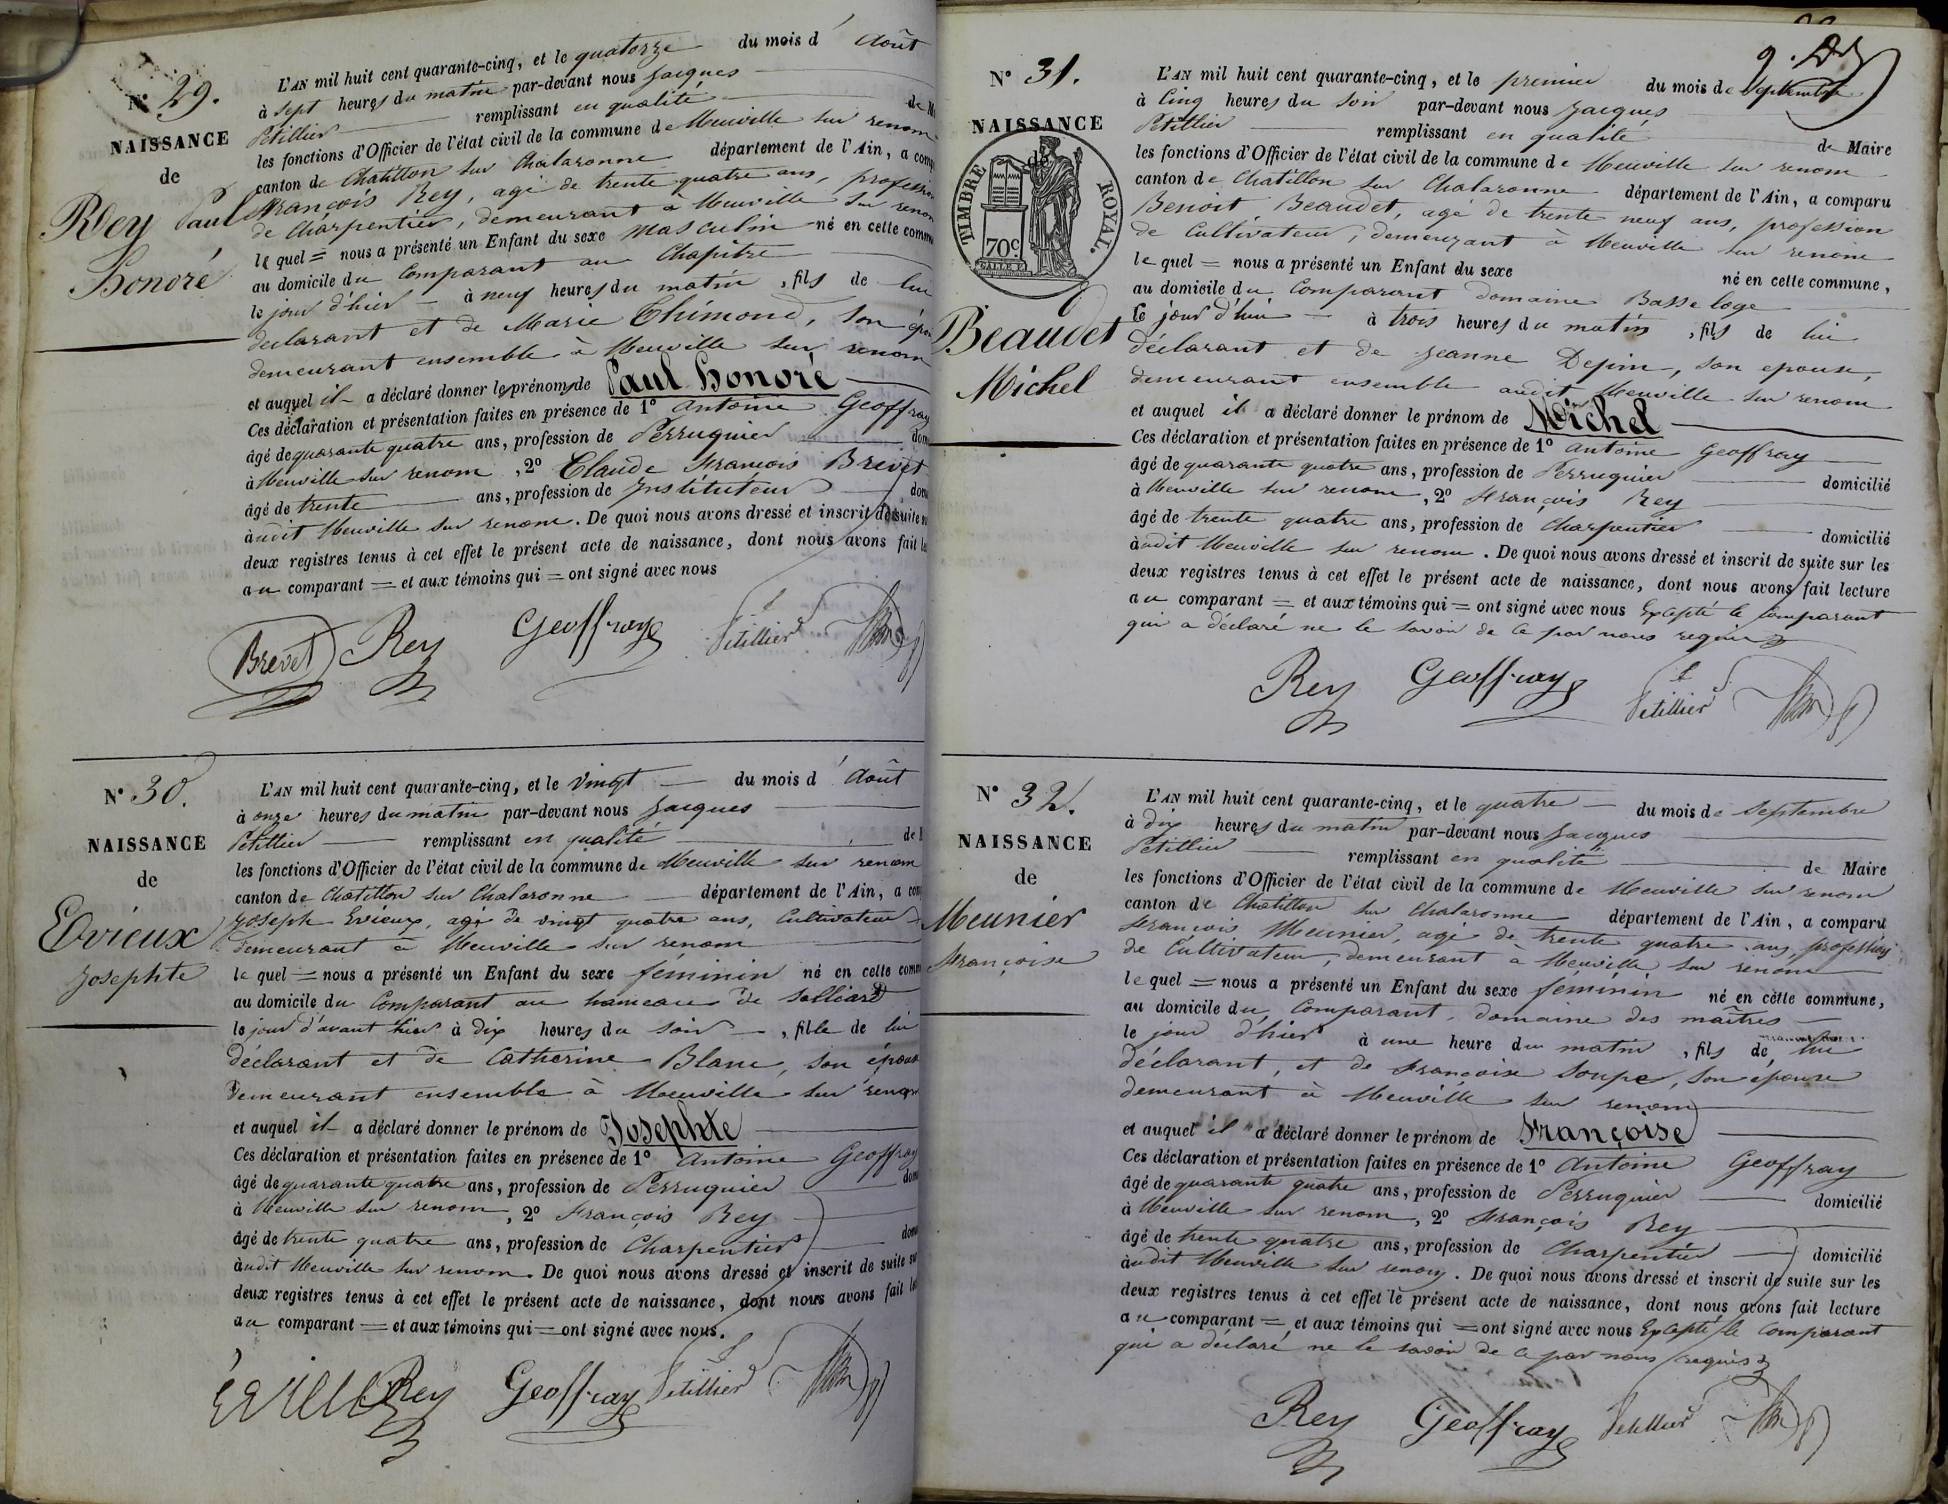 N° 29.
NAISSANCE
de
Rey Paul
Honoré
L'AN mil huit cent quarante-cinq, et le quatorze du mois d' Août
à sept heures du matin par-devant nous Jacques
Petillier remplissant en qualité de M
les fonctions d'Officier de l'état civil de la commune de Neuville sur renom
canton de Chatillon sur Chalaronne département de l'Ain, a comp
François Rey, agé de trente quatre ans, profession
de Charpentier, demeurant à Neuville sur renom
le quel = nous a présenté un Enfant du sexe masculin né en cette comm
au domicile du Comparant au Chapitre
le jour d'hier à neuf heures du matin, fils de lui
déclarant et de Marie Thimond, son épou
demeurant ensemble à Neuville sur renom
et auquel il a déclaré donner les prénoms de Paul Honoré
Ces déclaration et présentation faites en présence de 1° Antoine Geoffray
âgé de quarante quatre ans, profession de Perruquier dom
à Neuville sur renom, 2° Claude François Brevet
âgé de trente ans, profession de Instituteur dom
àudit Neuville sur renom. De quoi nous avons dressé et inscrit de suite su
deux registres tenus à cet effet le présent acte de naissance, dont nous avons fait le
au comparant = et aux témoins qui = ont signé avec nous
Brevet Rey Geoffray Petillier
N° 30.
NAISSANCE
de
Evieux
Josephte
L'AN mil huit cent quarante-cinq, et le Vingt du mois d' Août
à onze heures du matin par-devant nous Jacques
Petillier remplissant en qualité de M
les fonctions d'Officier de l'état civil de la commune de Neuville sur renom
canton de Chatillon sur Chalaronne département de l'Ain, a com
Joseph Evieux, agé de vingt quatre ans, Cultivateur
demeurant à Neuville sur renom
le quel = nous a présenté un Enfant du sexe féminin né en cette comm
au domicile du Comparant au hameau de Solliard
le jour d'avant hier à dix heures du soir, fille de lui
déclarant et de Catherine Blanc, son épouse
demeurant ensemble à Neuville sur renom
et auquel il a déclaré donner le prénom de Josephte
Ces déclaration et présentation faites en présence de 1° Antoine Geoffray
âgé de quarante quatre ans, profession de Perruquier dom
à Neuville sur renom, 2° François Rey
âgé de trente quatre ans, profession de Charpentier dom
àudit Neuville sur renom. De quoi nous avons dressé et inscrit de suite su
deux registres tenus à cet effet le présent acte de naissance, dont nous avons fait le
au comparant = et aux témoins qui = ont signé avec nous.
Evieux Rey Geoffray Petillier
N° 31.
NAISSANCE
de
TIMBRE ROYAL.
70c
Beaudet
Michel
L'AN mil huit cent quarante-cinq, et le premier du mois de Septembre
à Cinq heures du Soir par-devant nous Jacques
Petillier remplissant en qualité de Maire
les fonctions d'Officier de l'état civil de la commune de Neuville sur renom
canton de Chatillon sur Chalaronne département de l'Ain, a comparu
Benoit Beaudet, agé de trente neuf ans, profession
de Cultivateur, demeurant à Neuville sur renom
le quel = nous a présenté un Enfant du sexe né en cette commune,
au domicile du Comparant domaine Basse loge
le jour d'hui à trois heures du matin, fils de lui
déclarant et de Jeanne Depin, son epouse,
demeurant ensemble audit Neuville sur renom
et auquel il a déclaré donner le prénom de Michel
Ces déclaration et présentation faites en présence de 1° Antoine Geoffray
âgé de quarante quatre ans, profession de Perruquier domicilié
à Neuville sur renom, 2° François Rey
âgé de trente quatre ans, profession de Charpentier domicilié
àudit Neuville sur renom. De quoi nous avons dressé et inscrit de suite sur les
deux registres tenus à cet effet le présent acte de naissance, dont nous avons fait lecture
au comparant = et aux témoins qui = ont signé avec nous Excepté le Comparant
qui a déclaré ne le savoir de ce par nous requis
Rey Geoffray Petillier
N° 32.
NAISSANCE
de
Meunier
Françoise
L'AN mil huit cent quarante-cinq, et le quatre du mois de Septembre
à dix heures du matin par-devant nous Jacques
Petillier remplissant en qualité de Maire
les fonctions d'Officier de l'état civil de la commune de Neuville sur renom
canton de Chatillon sur Chalaronne département de l'Ain, a comparu
François Meunier, agé de trente quatre ans, profession
de Cultivateur, demeurant à Neuville sur renom
le quel = nous a présenté un Enfant du sexe féminin né en cette commune,
au domicile du Comparant, domaine des maîtres
le jour d'hier à une heure du matin, fils de lui
déclarant, et de Françoise Soupe, son épouse
demeurant à Neuville sur renom
et auquel il a déclaré donner le prénom de Françoise
Ces déclaration et présentation faites en présence de 1° Antoine Geoffray
âgé de quarante quatre ans, profession de Perruquier domicilié
à Neuville sur renom, 2° François Rey
âgé de trente quatre ans, profession de Charpentier domicilié
àudit Neuville sur renom. De quoi nous avons dressé et inscrit de suite sur les
deux registres tenus à cet effet le présent acte de naissance, dont nous avons fait lecture
au comparant = et aux témoins qui = ont signé avec nous Excepté le Comparant
qui a déclaré ne le savoir de ce par nous requis
Rey Geoffray Petillier